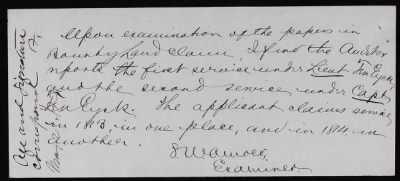 Upon examination of the papers in
Bounty Land Claim I find the Auditor
reports the first service under Lieut Ten Eyck,
and the second service under Capt.
Ten Eyck. The applicant claims service
in 1813, in one place, and in 1814 in
another.
Examiner.
Age and Signature
correspond.